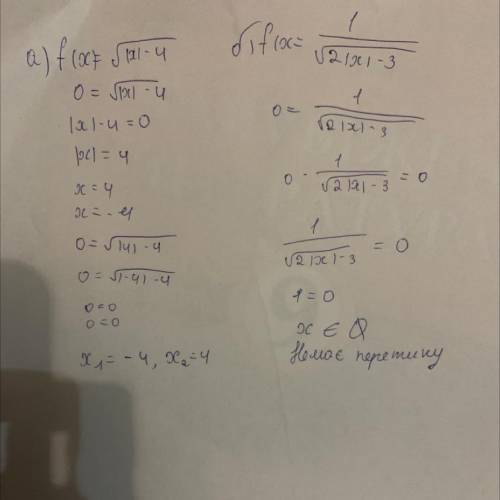 а) f(x)= √|x|-4
0 = √|x|-4
|x|-4=0
|x| = 4
x = 4
x = -4
0 = √|4|-4
0 = √|-4|-4
0=0
0=0
x₁ = -4, x₂=4
б) f(x= 1/√2|x|-3
0 = 1/√2|x|-3
0 - 1/√2|x|-3 = 0
1/√2|x|-3 = 0
1=0
x ∈ Q
Немає перетину